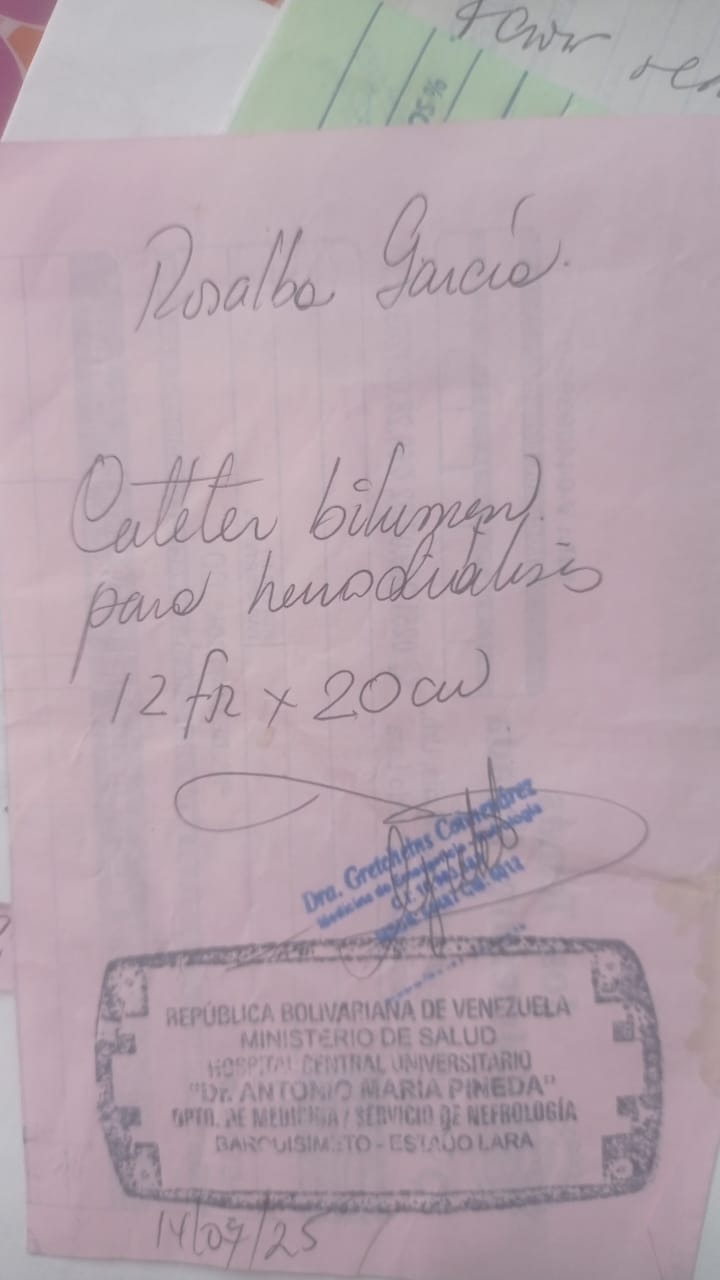 favor
25%
Rosalba García.
Catéter bilumen
para hemodiálisis
12 fr x 20 cm
Dra. Gretcheins
REPÚBLICA BOLIVARIANA DE VENEZUELA
MINISTERIO DE SALUD
HOSPITAL CENTRAL UNIVERSITARIO
"Dr. ANTONIO MARIA PINEDA"
DPTO. DE MEDICINA / SERVICIO DE NEFROLOGÍA
BARQUISIMETO - ESTADO LARA
14/07/25